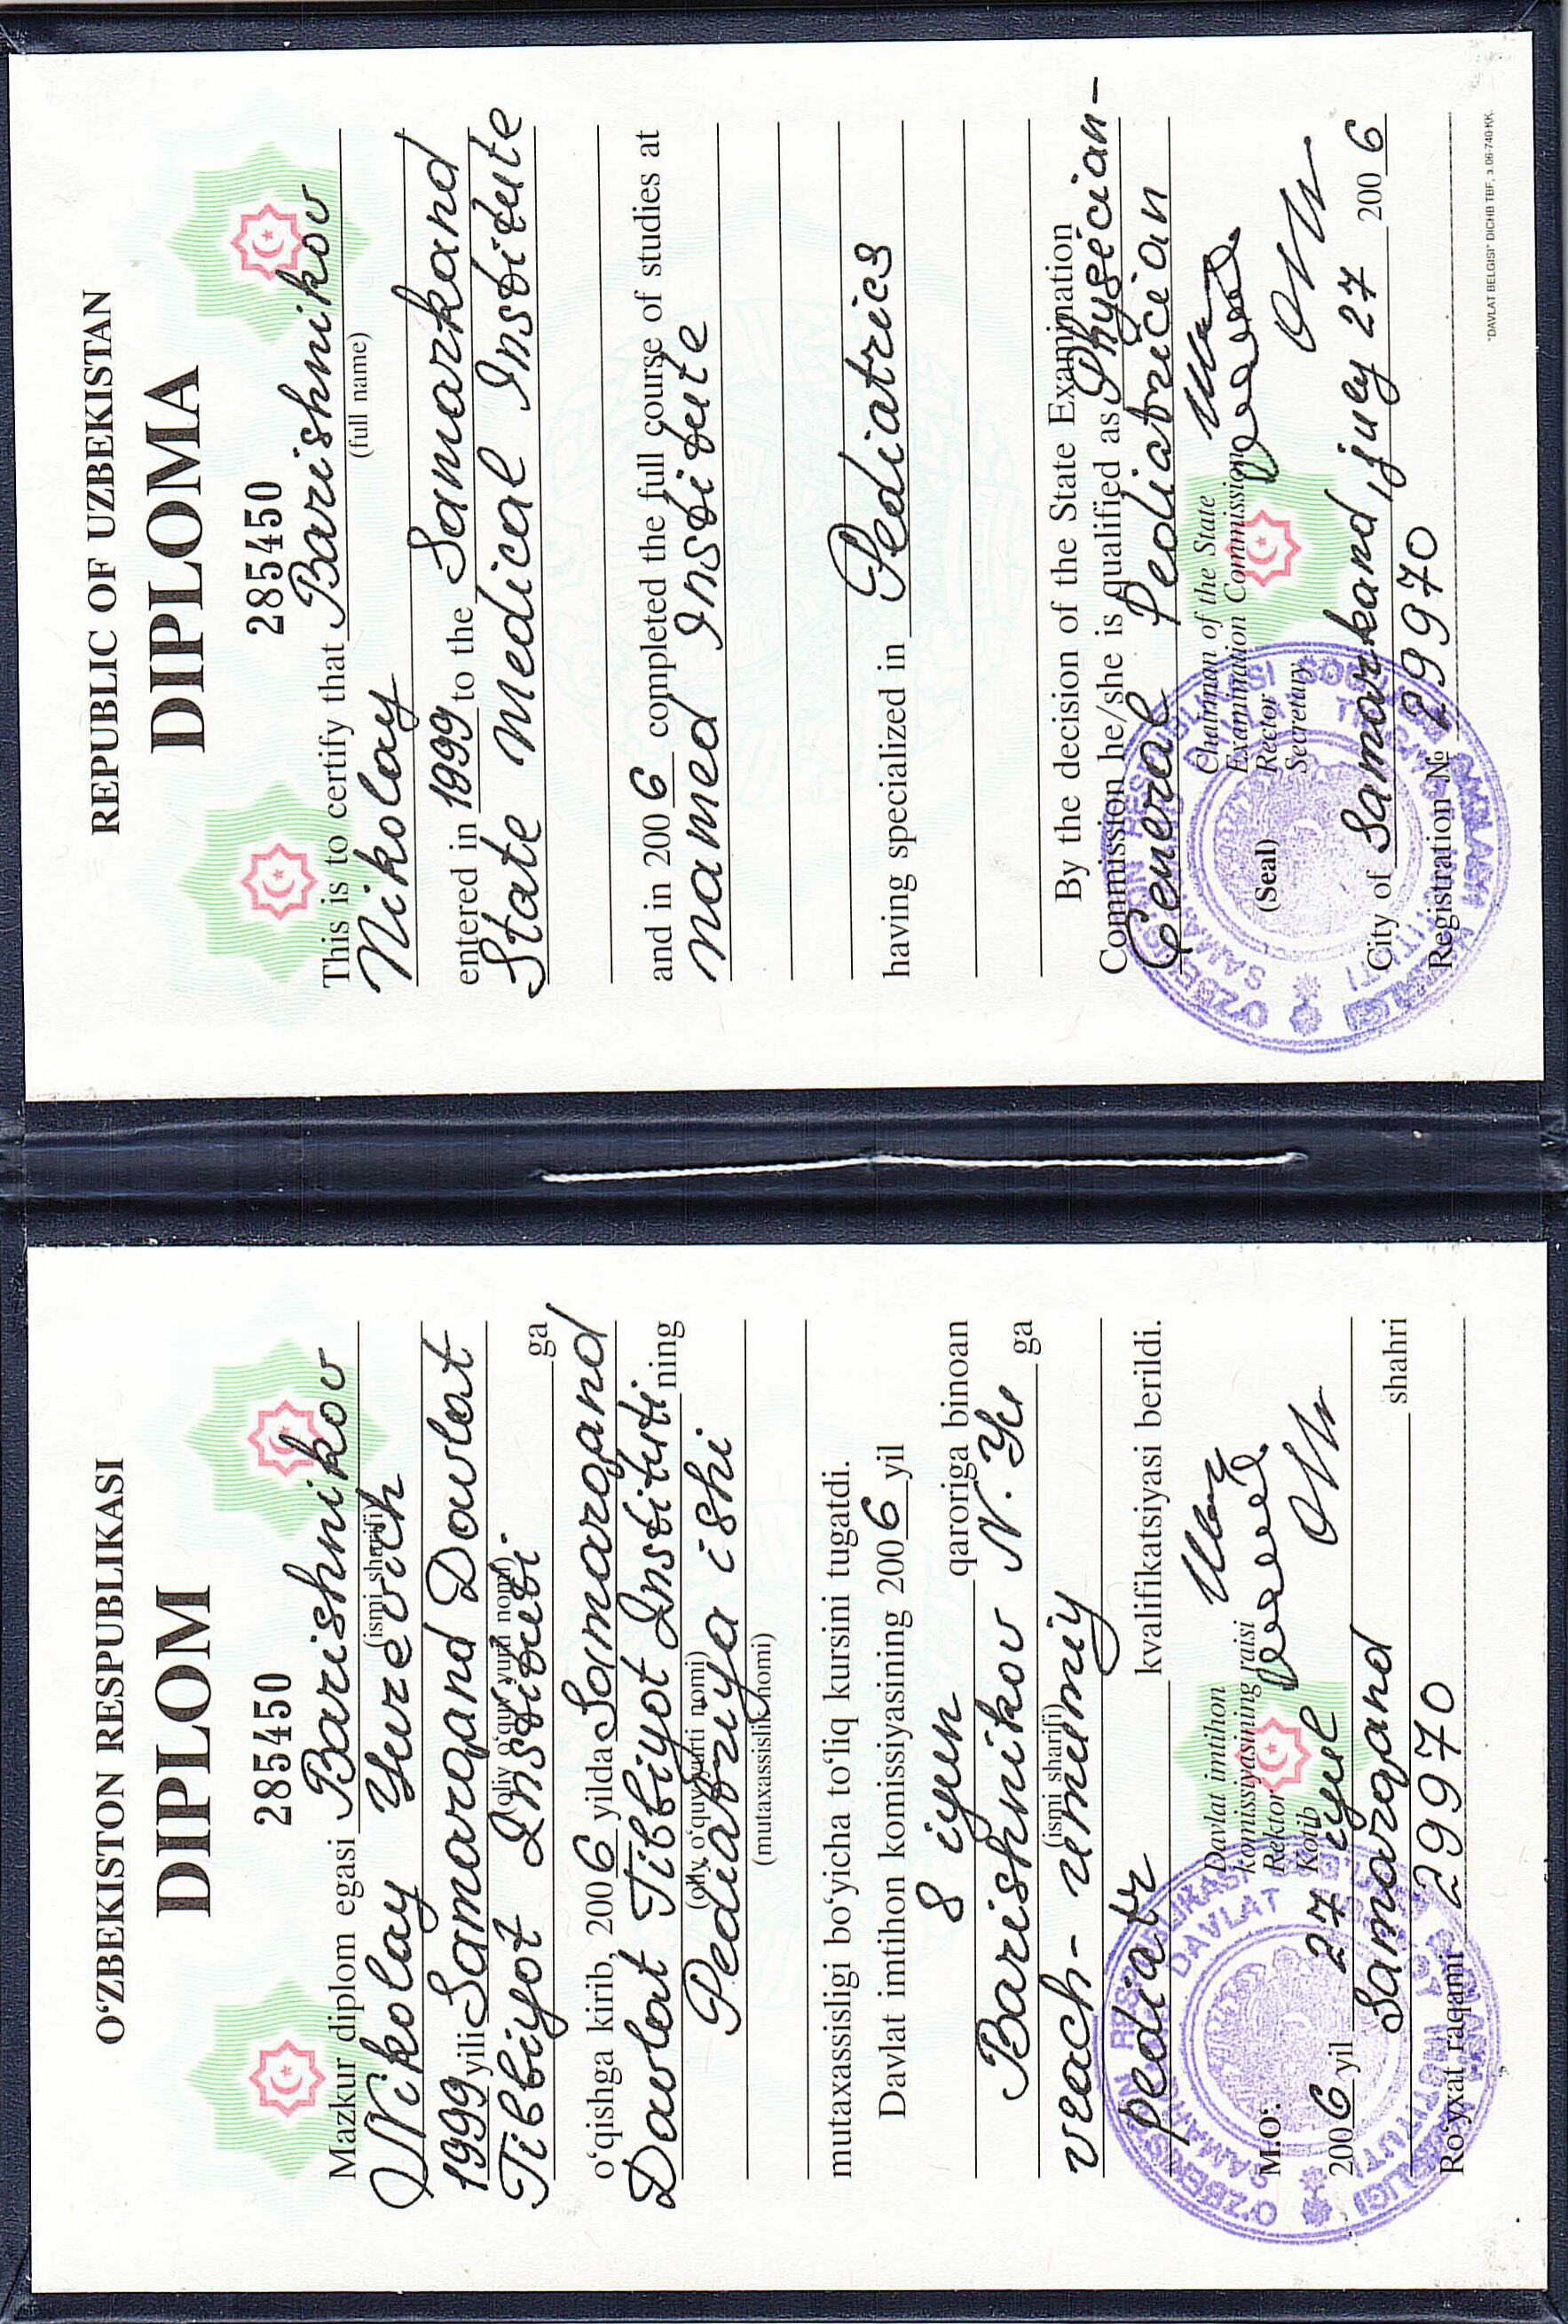 O‘ZBEKISTON RESPUBLIKASI
DIPLOM
285450
Mazkur diplom egasi Barishnikov
Nikolay Yurevich
(ismi sharifi)
1999 yili Samarqand Davlat
Tibbiyot Instituti ga
(oliy o‘quv yurti nomi)
o‘qishga kirib, 2006 yilda Samarqand
Davlat Tibbiyot Instituti ning
(oliy o‘quv yurti nomi)
Pediatriya ishi
(mutaxassislik nomi)
mutaxassisligi bo‘yicha to‘liq kursini tugatdi.
Davlat imtihon komissiyasining 2006 yil
8 iyun qaroriga binoan
Barishnikov N. Yu ga
(ismi sharifi)
vrach- umumiy
pediatr kvalifikatsiyasi berildi.
Davlat imtihon
komissiyasining raisi
Rektor
M.O‘. Kotib
2006 yil 27 iyul
Samarqand shahri
Ro‘yxat raqami 29970
REPUBLIC OF UZBEKISTAN
DIPLOMA
285450
This is to certify that Barishnikov
Nikolay (full name)
entered in 1999 to the Samarkand
State Medical Institute
and in 2006 completed the full course of studies at
named Institute
having specialized in Pediatrics
By the decision of the State Examination
Commission he/she is qualified as Physician-
General Pediatrician
Chairman of the State
Examination Commission
(Seal) Rector
Secretary
City of Samarkand, july 27 2006
Registration № 29970
"DAVLAT BELGISI" DICHB TBF, з.06-740-КК.